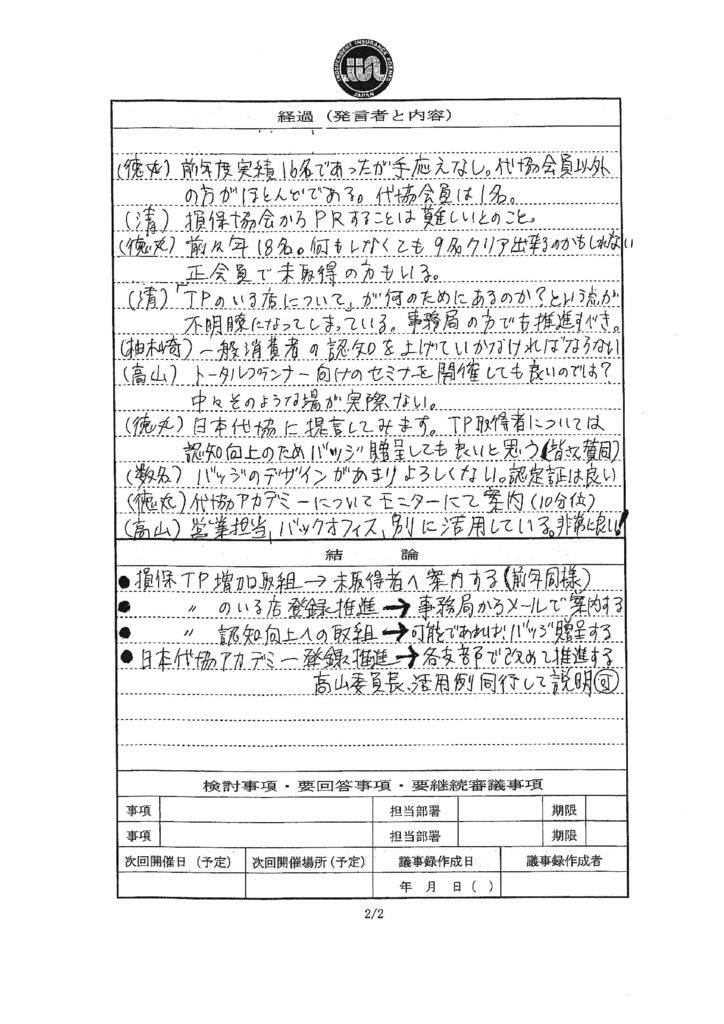 INDEPENDENT INSURANCE AGENTS
JAPAN
経過（発言者と内容）
(徳丸) 前年度実績16名であったが手応えなし。代協会員以外
の方がほとんどである。代協会員は1名。
(清) 損保協会からPRすることは難しいとのこと。
(徳丸) 前々年18名。何もしなくても9名クリア出来るのかもしれない
正会員で未取得の方もいる。
(清)「TPのいる店について」が何のためにあるのか?という点が
不明瞭になってしまっている。事務局の方でも推進すべき。
(柚木崎) 一般消費者の認知を上げていかなければならない
(高山) トータルプランナー向けのセミナーを開催しても良いのでは?
中々そのような場が実際ない。
(徳丸) 日本代協に提言してみます。TP取得者については
認知向上のためバッジ贈呈しても良いと思う(皆さん賛同)
(数名) バッジのデザインがあまりよろしくない。認定証は良い
(徳丸) 代協アカデミーについてモニターにて案内(10分位)
(高山) 営業担当、バックオフィス、別に活用している。非常に良い!
結論
● 損保TP増加取組→未取得者へ案内する(前年同様)
● 〃 のいる店登録推進→事務局からメールで案内する
● 〃 認知向上への取組→可能であればバッジ贈呈する
● 日本代協アカデミー登録推進→各支部で改めて推進する
高山委員長、活用例同行して説明㊞
検討事項・要回答事項・要継続審議事項
事項 担当部署 期限
事項 担当部署 期限
次回開催日（予定） 次回開催場所（予定） 議事録作成日 議事録作成者
年 月 日（ ）
2/2